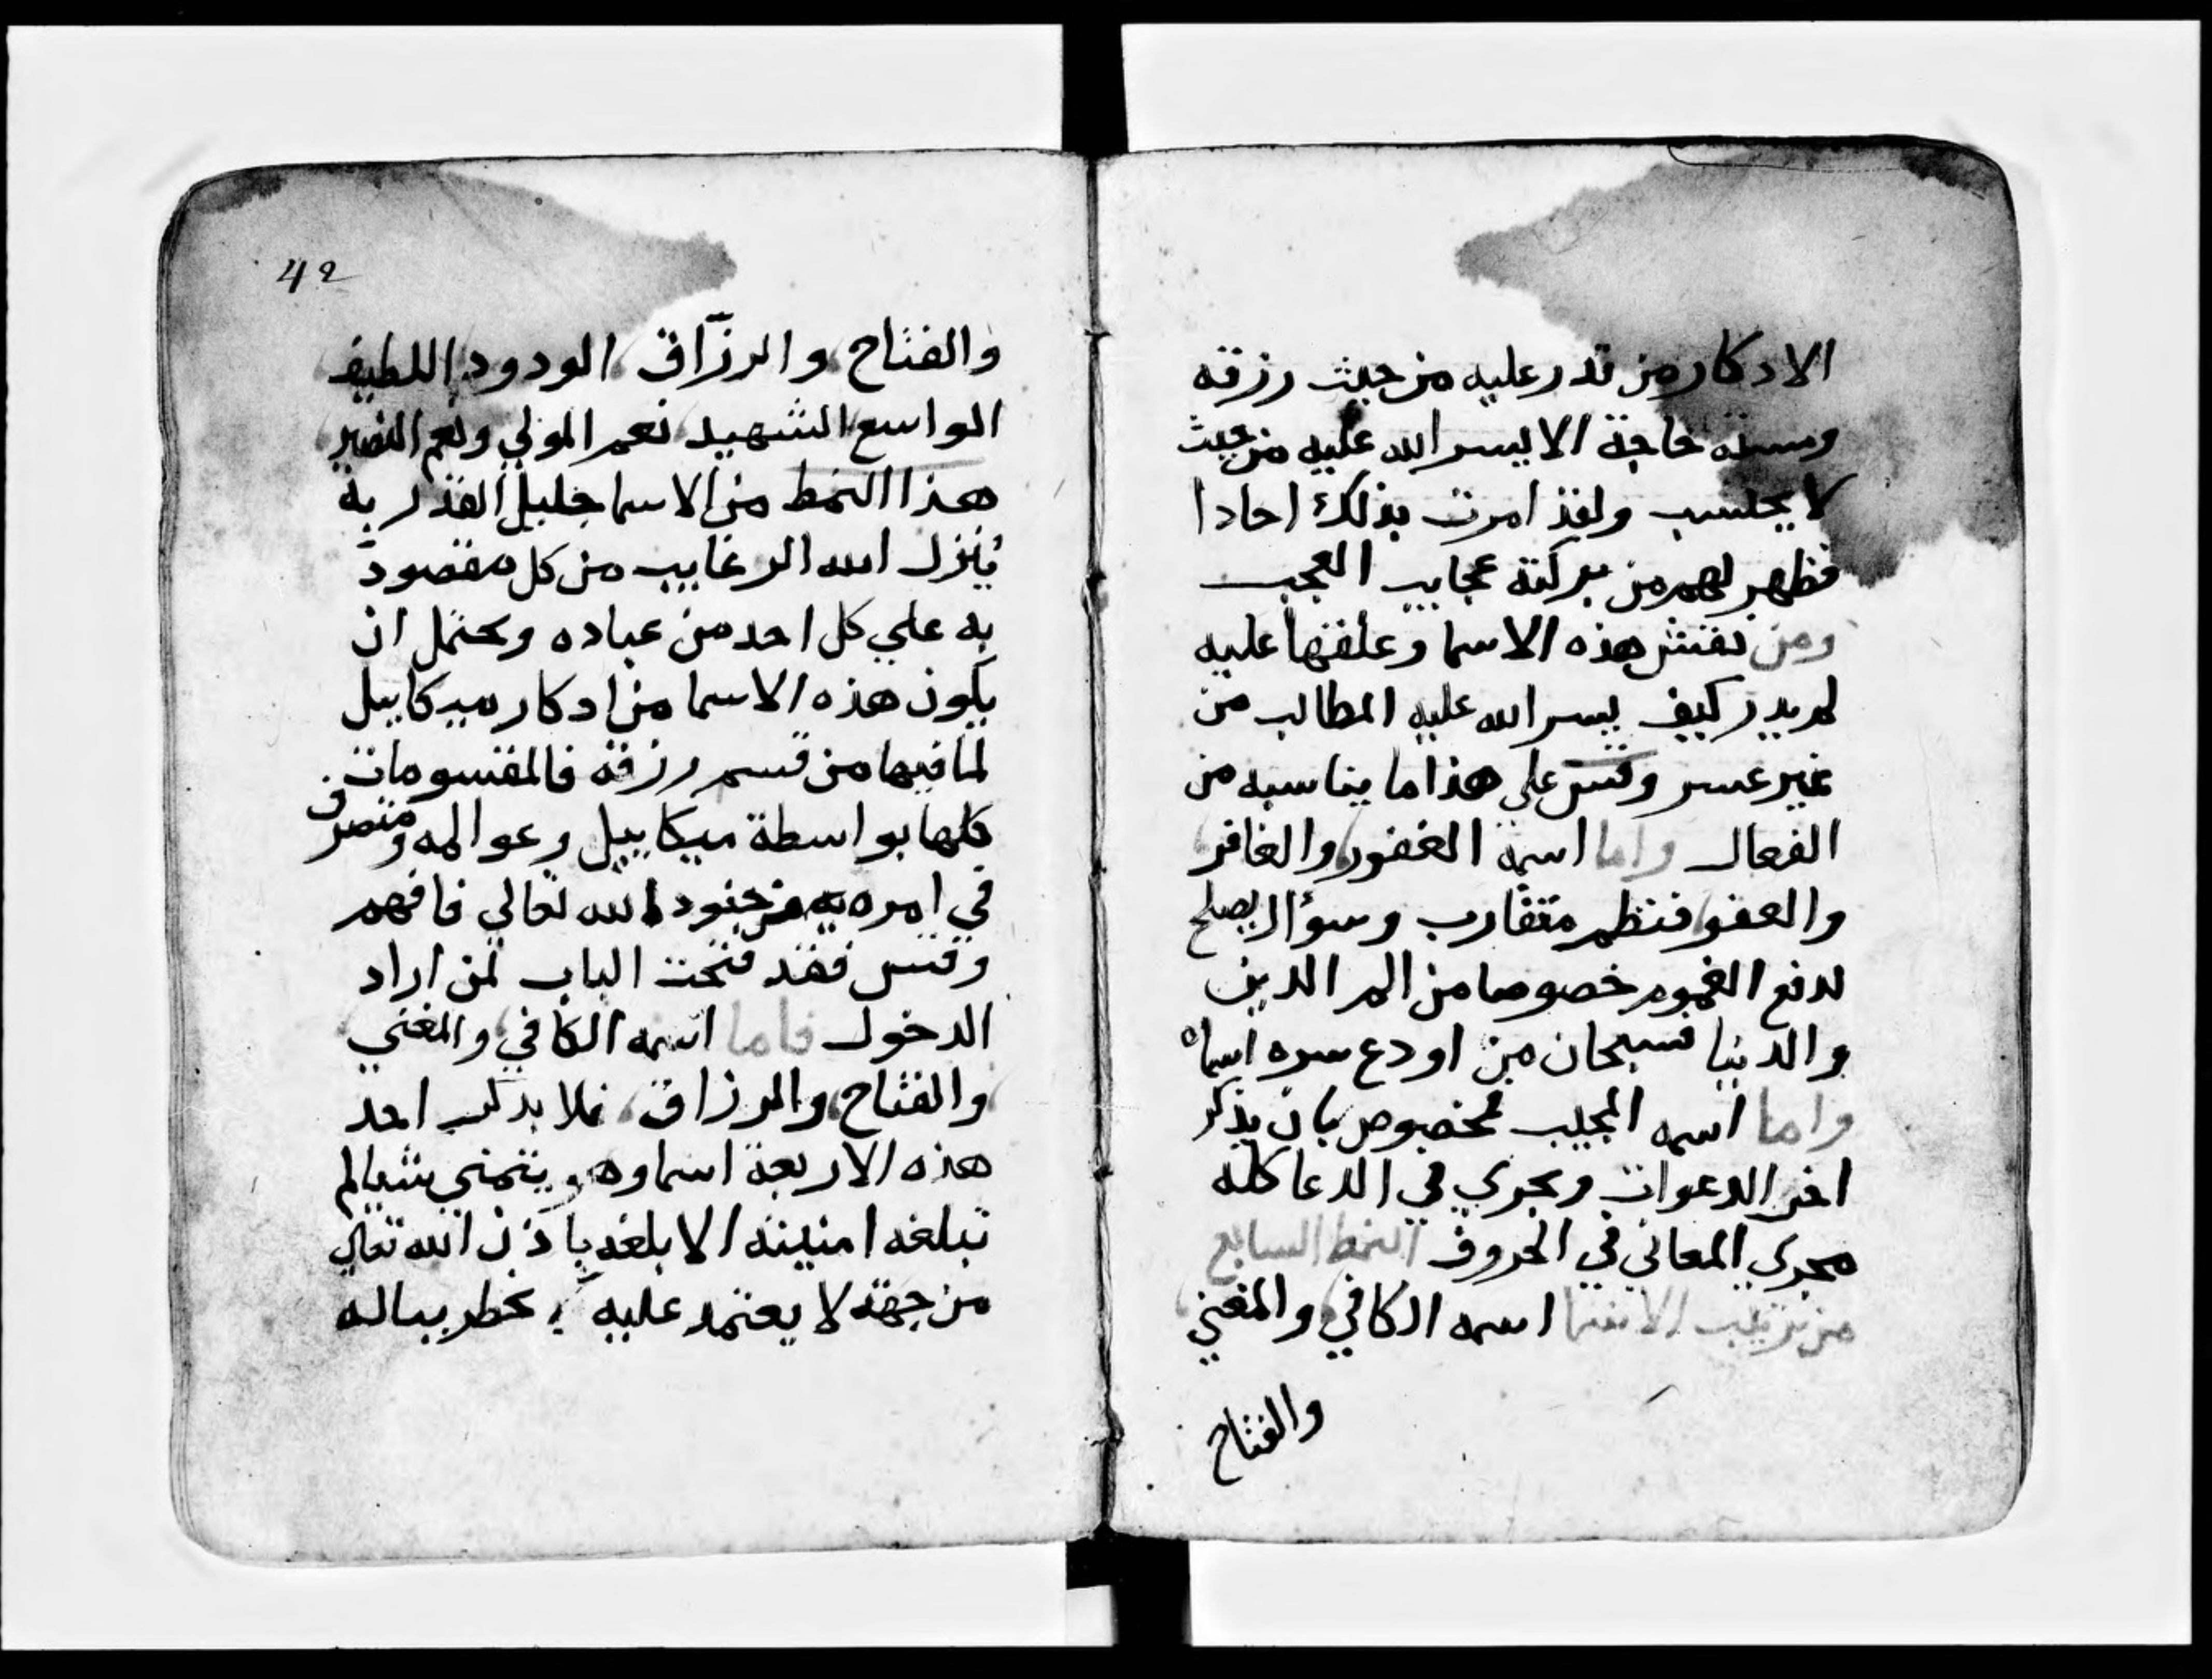 الادكار من قدر عليه من حيث رزقه
ومسته حاجة الا يسر الله عليه من حيث
لا يحتسب ولقد امرت بذلك احادا
فظهر لهم من بركته عجايب العجب
ومن نقش هذه الاسما وعلقها عليه
لم يدر كيف يسر الله عليه المطالب من
غير عسر وقس علي هذا ما يناسبه من
الفعال واما اسمه الغفور والغافر
والعفو فنظم متقارب وسؤال يصلح
لدفع الغموم خصوصا من الم الدين
والدنيا فسبحان من اودع سره اسماه
واما اسمه المجيب مخصوص بان يذكر
اخر الدعوات ويجري في الدعا كله
مجري المعاني في الحروف النمط السابع
من ترتيب الاسما اسمه الكافي والمغني
والفتاح
42
والفتاح والرزّاق الودود اللطيف
الواسع الشهيد نعم المولي ونعم النصير
هذا النمط من الاسما جليل القدر به
ينزل الله الرغايب من كل مقصود
به علي كل احد من عباده ويحتمل ان
يكون هذه الاسما من ادكار ميكاييل
لما فيها من قسم رزقه فالمقسومات
كلها بواسطة ميكاييل وعوالمه ومتصرف
في امره من جنود الله تعالي فافهم
وقس فقد فتحت الباب لمن اراد
الدخول فاما اسمه الكافي والمغني
والفتاح والرزاق فلا يذكر احد
هذه الاربعة اسما وهو يتمني شيا لم
تبلغه امنيته الا بلغه باذن الله تعالي
من جهة لا يعتمد عليه يخطر بباله